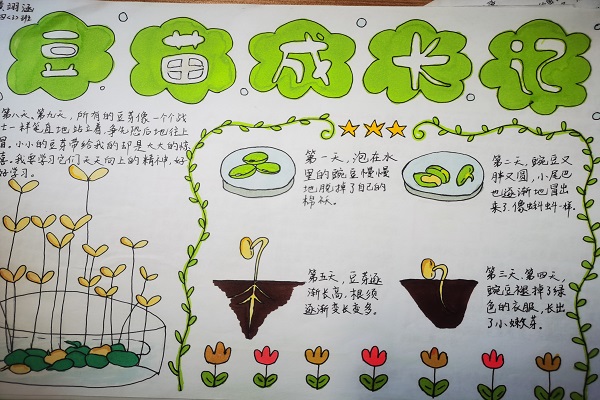 黄翊涵
四<2>班
豆苗成长记
第八天、第九天，所有的豆芽像一个个战
士一样笔直地站立着，争先恐后地往上
冒。小小的豆芽带给我的却是大大的惊
喜。我要学习它们天天向上的精神，好
好学习。
第一天，泡在水
里的豌豆慢慢
地脱掉了自己的
棉袄。
第二天，豌豆又
胖又圆，小尾巴
也逐渐地冒出
来了，像蝌蚪一样。
第五天，豆芽逐
渐长高，根须
逐渐变长变多。
第三天、第四天，
豌豆褪掉了绿
色的衣服，长出
了小嫩芽。